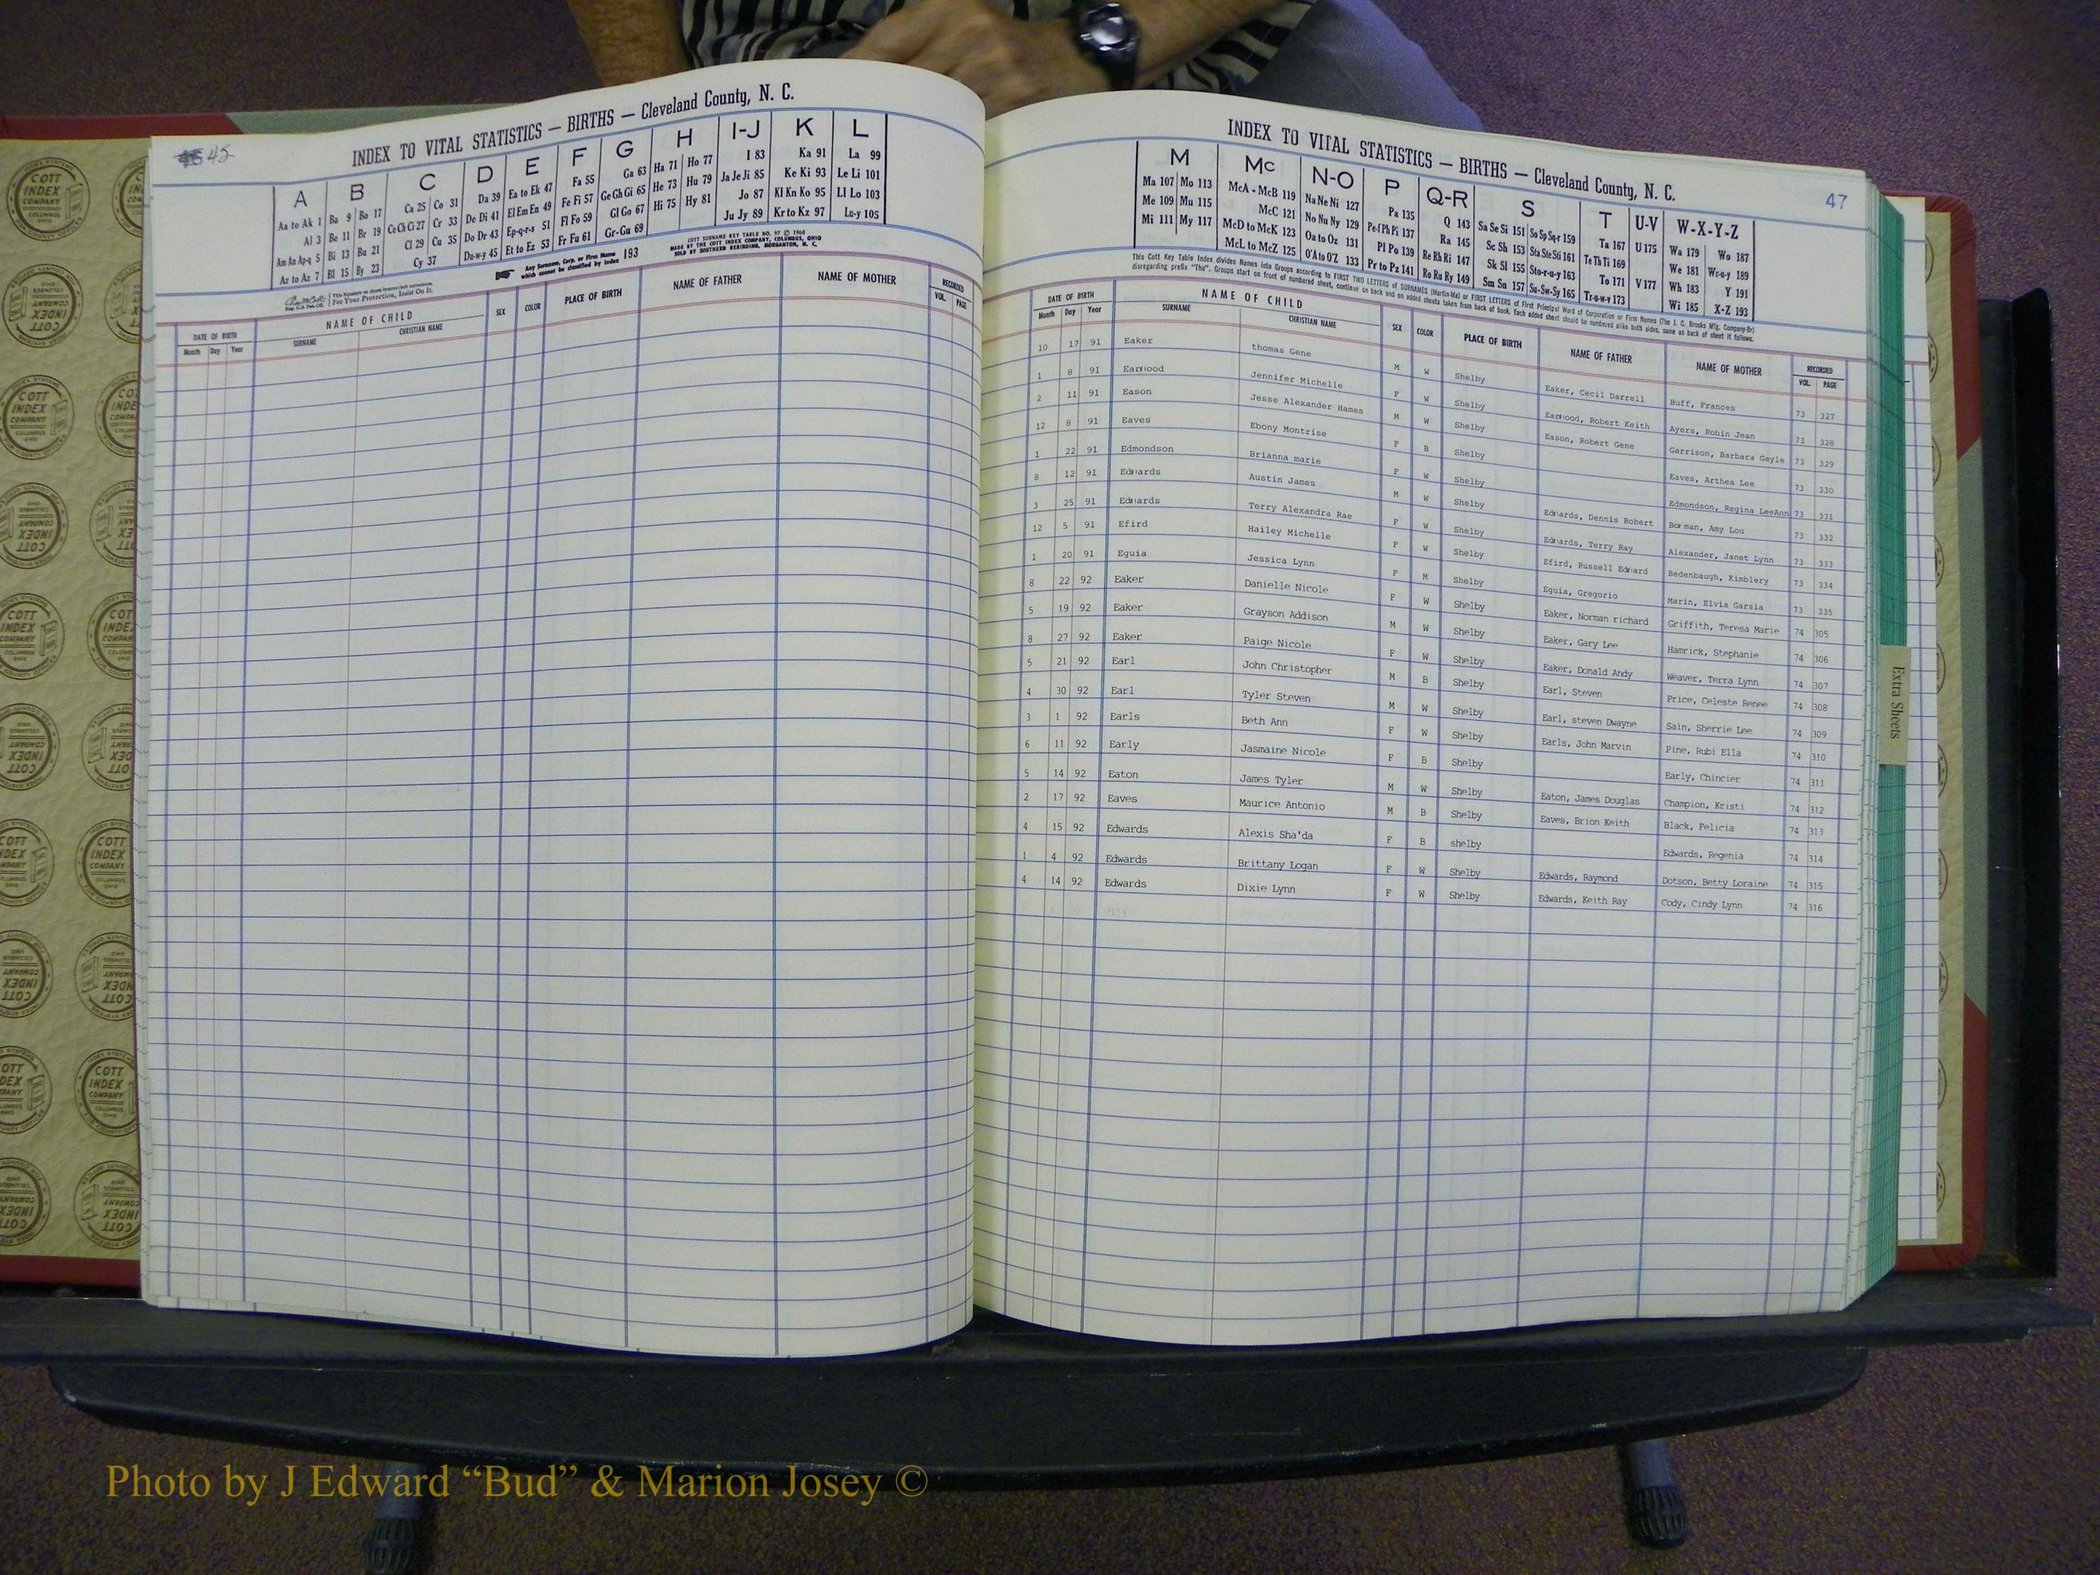 45
INDEX TO VITAL STATISTICS — BIRTHS — Cleveland County, N. C.
A B C D E F G H I-J K L
Aa to Ak 1 Ba 9 Bo 17 Ca 25 Co 31 Da 39 Ea to Ek 47 Fa 55 Ga 63 Ha 71 Ho 77 I 83 Ka 91 La 99
Al 3 Be 11 Br 19 Ce Ch Ci 27 Cr 33 De Di 41 El Em En 49 Fe Fi 57 Ge Gh Gi 65 He 73 Hu 79 Ja Je Ji 85 Ke Ki 93 Le Li 101
Am An Ap-q 5 Bi 13 Bu 21 Cl 29 Cu 35 Do Dr 43 Ep-q-r-s 51 Fl Fo 59 Gl Go 67 Hi 75 Hy 81 Jo 87 Kl Kn Ko 95 Ll Lo 103
Ar to Az 7 Bl 15 By 23 Cy 37 Du-w-y 45 Et to Ez 53 Fr Fu 61 Gr-Gu 69 Ju Jy 89 Kr to Kz 97 Lu-y 105
Any Surname, Corp. or Firm Name which cannot be classified by Index 193
COTT SURNAME KEY TABLE NO. 97 © 1960
MADE BY THE COTT INDEX COMPANY, COLUMBUS, OHIO
SOLD BY SOUTHERN REBINDING, MORGANTON, N. C.
For Your Protection, Insist On It.
DATE OF BIRTH NAME OF CHILD SEX COLOR PLACE OF BIRTH NAME OF FATHER NAME OF MOTHER RECORDED
Month Day Year SURNAME CHRISTIAN NAME VOL. PAGE
INDEX TO VITAL STATISTICS — BIRTHS — Cleveland County, N. C.
47
M Mc N-O P Q-R S T U-V W-X-Y-Z
Ma 107 Mo 113 McA - McB 119 Na Ne Ni 127 Pa 135 Q 143 Sa Se Si 151 So Sp Sq-r 159 Ta 167 U 175 Wa 179 Wo 187
Me 109 Mu 115 McC 121 No Nu Ny 129 Pe-f Ph Pi 137 Ra 145 Sc Sh 153 Sta Ste Sti 161 Te Th Ti 169 V 177 We 181 Wr-u-y 189
Mi 111 My 117 McD to McK 123 Oa to Oz 131 Pl Po 139 Re Rh Ri 147 Sk Sl 155 Sto-r-u-y 163 To 171 Wh 183 Y 191
McL to McZ 125 O'A to O'Z 133 Pr to Pz 141 Ro Ru Ry 149 Sm Sn 157 Su-Sw-Sy 165 Tr-u-w-y 173 Wi 185 X-Z 193
This Cott Key Table Index divides Names into Groups according to FIRST TWO LETTERS of SURNAMES (Martin-Ma) or FIRST LETTERS of First Principal Word of Corporation or Firm Names (The J. C. Brooks Mfg. Company-Br)
disregarding prefix "The". Groups start on front of numbered sheet, continue on back and on added sheets taken from back of book. Each added sheet should be numbered alike both sides, same as back of sheet it follows.
DATE OF BIRTH NAME OF CHILD SEX COLOR PLACE OF BIRTH NAME OF FATHER NAME OF MOTHER RECORDED
Month Day Year SURNAME CHRISTIAN NAME VOL. PAGE
10 17 91 Eaker thomas Gene M W Shelby Eaker, Cecil Darrell Buff, Frances 73 327
1 8 91 Earwood Jennifer Michelle F W Shelby Earwood, Robert Keith Ayers, Robin Jean 73 328
2 11 91 Eason Jesse Alexander Hames M W Shelby Eason, Robert Gene Garrison, Barbara Gayle 73 329
12 8 91 Eaves Ebony Montrise F B Shelby Eaves, Arthea Lee 73 330
1 22 91 Edmondson Brianna marie F W Shelby Edmondson, Regina LeeAnn 73 331
8 12 91 Edwards Austin James M W Shelby Edwards, Dennis Robert Bowman, Amy Lou 73 332
3 25 91 Edwards Terry Alexandra Rae F W Shelby Edwards, Terry Ray Alexander, Janet Lynn 73 333
12 5 91 Efird Hailey Michelle F W Shelby Efird, Russell Edward Bedenbaugh, Kimblery 73 334
1 20 91 Eguia Jessica Lynn F M Shelby Eguia, Gregorio Marin, Elvia Garsia 73 335
8 22 92 Eaker Danielle Nicole F W Shelby Eaker, Norman richard Griffith, Teresa Marie 74 305
5 19 92 Eaker Grayson Addison M W Shelby Eaker, Gary Lee Hamrick, Stephanie 74 306
8 27 92 Eaker Paige Nicole F W Shelby Eaker, Donald Andy Weaver, Terra Lynn 74 307
5 21 92 Earl John Christopher M B Shelby Earl, Steven Price, Celeste Renee 74 308
4 30 92 Earl Tyler Steven M W Shelby Earl, steven Dwayne Sain, Sherrie Lee 74 309
3 1 92 Earls Beth Ann F W Shelby Earls, John Marvin Pine, Rubi Ella 74 310
6 11 92 Early Jasmaine Nicole F B Shelby Early, Chincier 74 311
5 14 92 Eaton James Tyler M W Shelby Eaton, James Douglas Champion, Kristi 74 312
2 17 92 Eaves Maurice Antonio M B Shelby Eaves, Brion Keith Black, Felicia 74 313
4 15 92 Edwards Alexis Sha'da F B shelby Edwards, Regenia 74 314
1 4 92 Edwards Brittany Logan F W Shelby Edwards, Raymond Dotson, Betty Loraine 74 315
4 14 92 Edwards Dixie Lynn F W Shelby Edwards, Keith Ray Cody, Cindy Lynn 74 316
Extra Sheets
COTT INDEX COMPANY COLUMBUS OHIO
Photo by J Edward “Bud” & Marion Josey ©